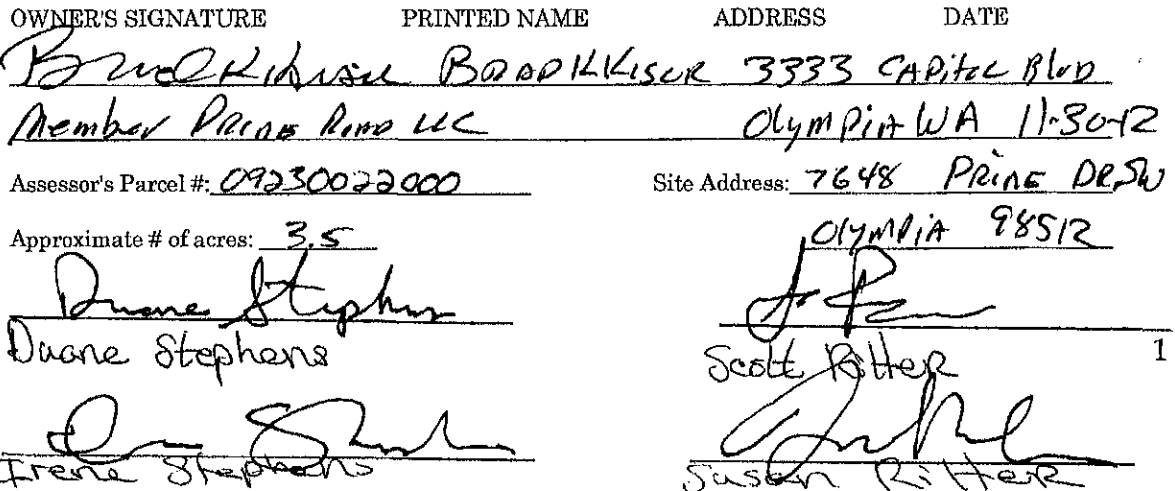 OWNER'S SIGNATURE PRINTED NAME ADDRESS DATE
BRAD K KISUR 3333 CAPITOL BLVD
Member PRINE ROAD LLC OLYMPIA WA 11-30-12
Assessor's Parcel #: 09230022000 Site Address: 7648 PRINE DR SW
Approximate # of acres: 3.5 OLYMPIA 98512
Duane Stephens
Duane Stephens Scott Ritter 1
Irene Stephens Susan Ritter